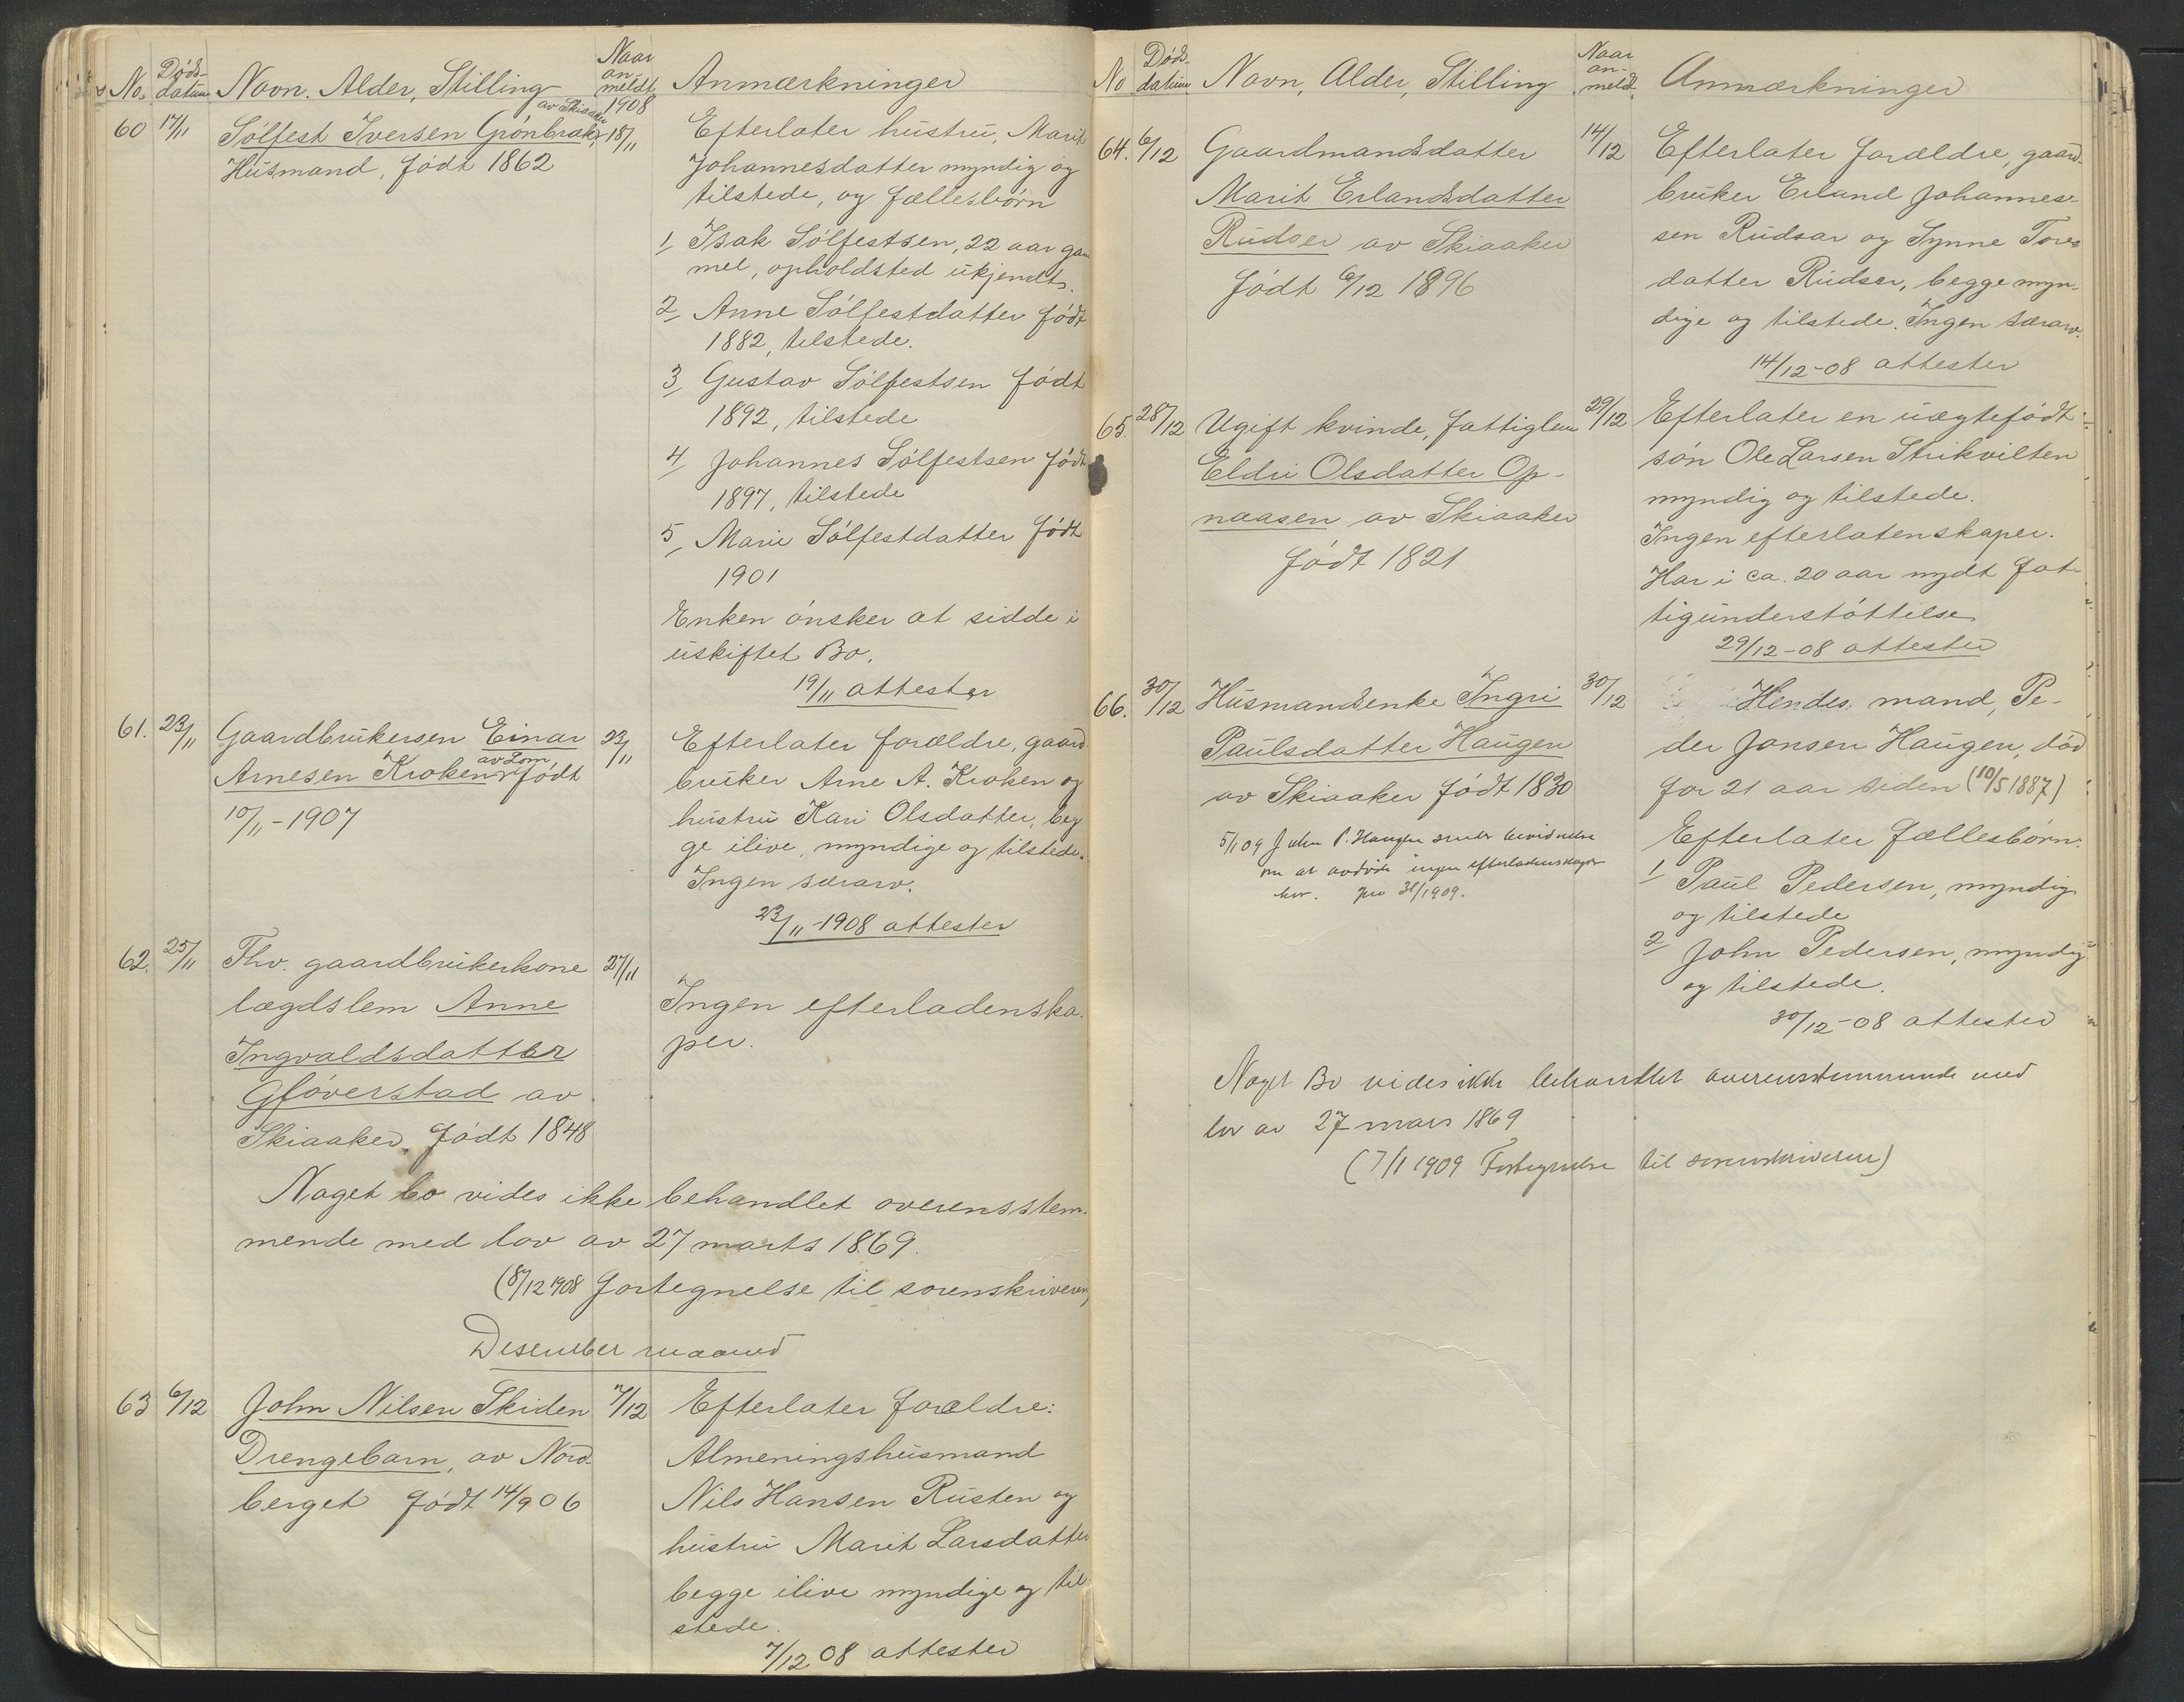 No. Døds-datum Navn. Alder, Stilling Naar an-meldt 1908 Anmærkninger
60 17/11 Sølfest Iversen Grønbræk, av Skiaaker 18/11
Husmand, født 1862
Efterlater hustru, Marit
Johannesdatter myndig og
tilstede, og fællesbørn
1, Isak Sølfestsen, 22 aar gam
mel, opholdsted ukjendt.
2, Anne Sølfestdatter født
1882, tilstede.
3, Gustav Sølfestsen født
1892, tilstede
4, Johannes Sølfestsen født
1897, tilstede
5, Marie Sølfestdatter født
1901
Enken ønsker at sidde i
uskiftet Bo.
19/11 attester
61. 23/11 Gaardbrukersøn Einar 23/11
Arnesen Kroken av Lom, født
10/11-1907
Efterlater forældre, gaard-
bruker Arne A. Kroken og
hustru Kari Olsdatter, beg
ge ilive, myndige og tilstede.
Ingen særarv.
23/11-1908 attester
62. 25/11 Fhv. gaardbrukerkone 27/11
lægdslem Anne
Ingvaldsdatter
Gløverstad av
Skiaaker, født 1848
Ingen efterladenska-
per.
Noget bo vides ikke behandlet overensstem-
mende med lov av 27 marts 1869.
(8/12 1908 Fortegnelse til sorenskriveren)
Desember maaned
63 6/12 John Nilsen Skiden 7/12
Drengebarn, av Nord-
berget født 14/9 06
Efterlater forældre:
Almeningshusmand
Nils Hansen Rusten og
hustru Marit Larsdatter
begge ilive myndige og til
stede.
7/12 08 attester
No Døds-datum Navn, Alder, Stilling Naar an-meldt. Anmærkninger
64. 6/12 Gaardmandsdatter 14/12
Marit Erlandsdatter
Rudser av Skiaaker
født 6/12 1896
Efterlater forældre, gaard-
bruker Erland Johannes-
sen Rudsar og Synne Tores
datter Rudser, begge myn-
dige og tilstede. Ingen særarv.
14/12-08 attester
65. 28/12 Ugift kvinde, fattiglem 29/12
Eldri Olsdatter Op-
naasen av Skiaaker
født 1821
Efterlater en uægtefødt
søn Ole Larsen Strikvilten
myndig og tilstede.
Ingen efterlatenskaper.
Har i ca. 20 aar nydt fat-
tigunderstøttelse
29/12-08 attester
66. 30/12 Husmandsenke Ingri 30/12
Paulsdatter Haugen
av Skiaaker født 1830
5/1 09 John P. Haugen sender bevidnelse
om at avdøde ingen efterladenskaper
har.
Hendes mand, Pe-
der Jonsen Haugen, død
for 21 aar siden (10/5 1887)
Efterlater fællesbørn:
1, Paul Pedersen, myndig
og tilstede
2, John Pedersen, myndig
og tilstede.
30/12-08 attester
Noget Bo vides ikke behandlet overensstemmende med
lov av 27 mars 1869
(7/1 1909 Fortegnelse til sorenskriveren)